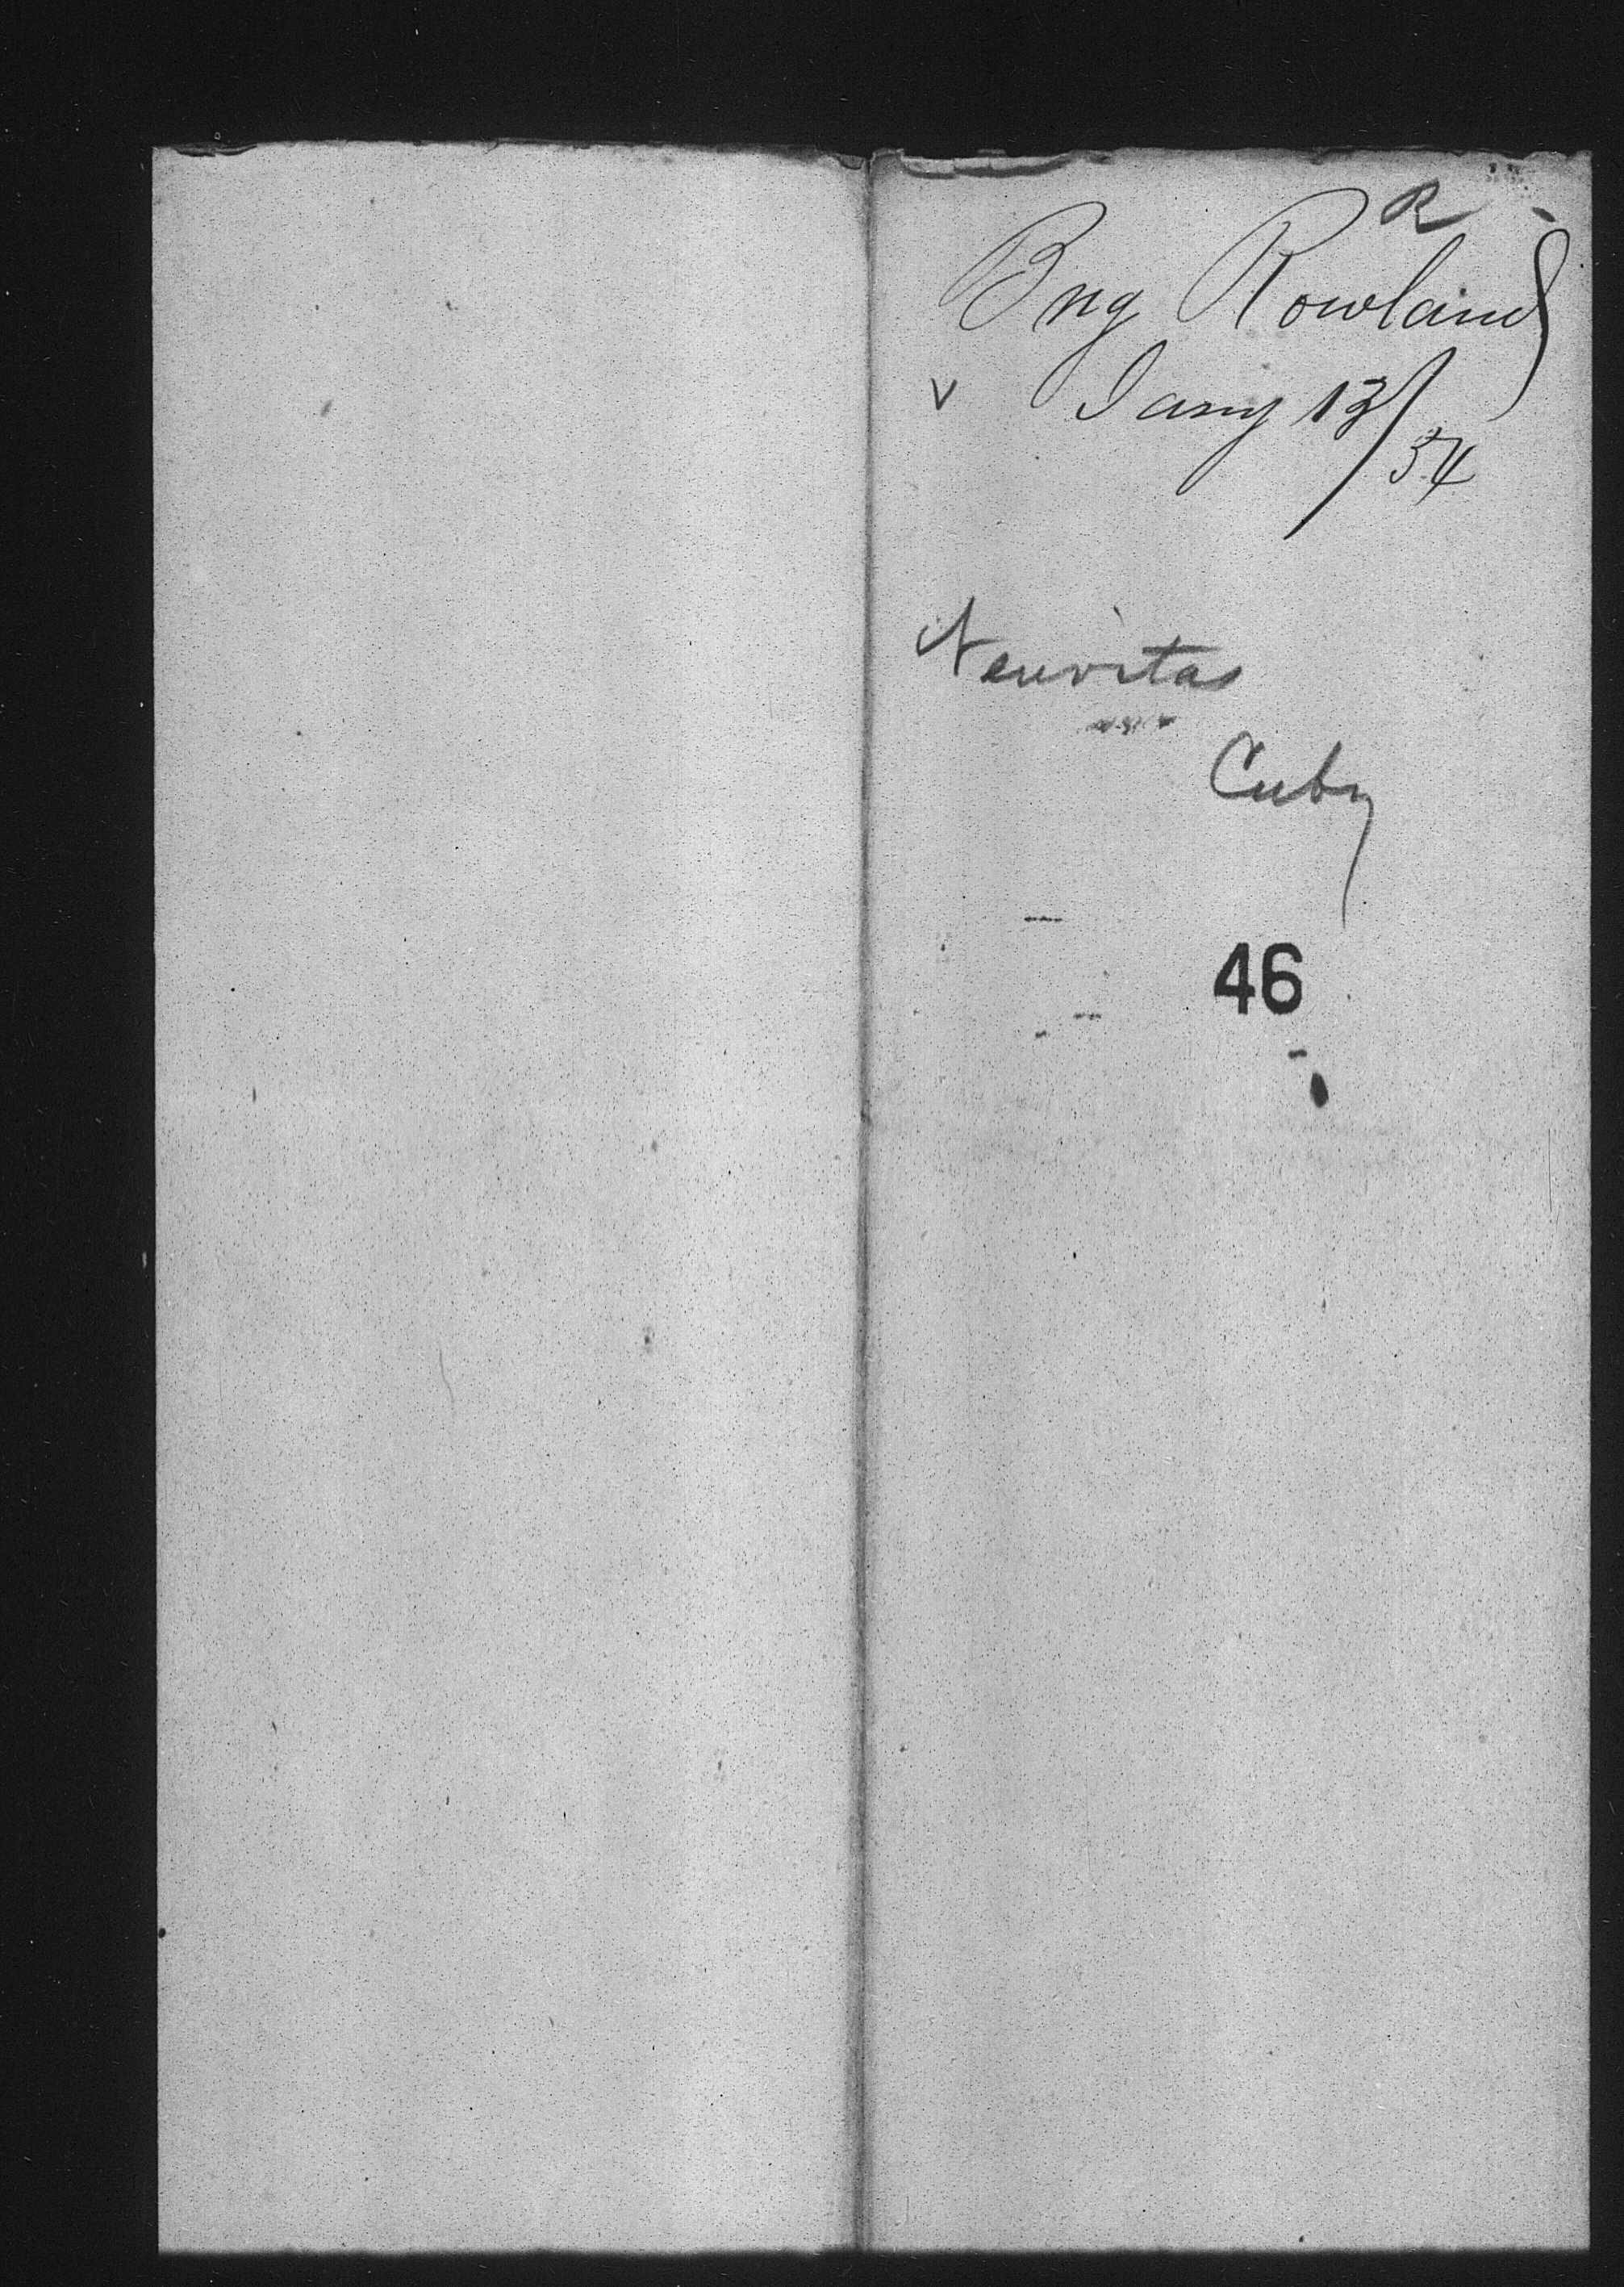 R
Brig Rowland
v Jany 13/54
Neuvitas
Cuba
46